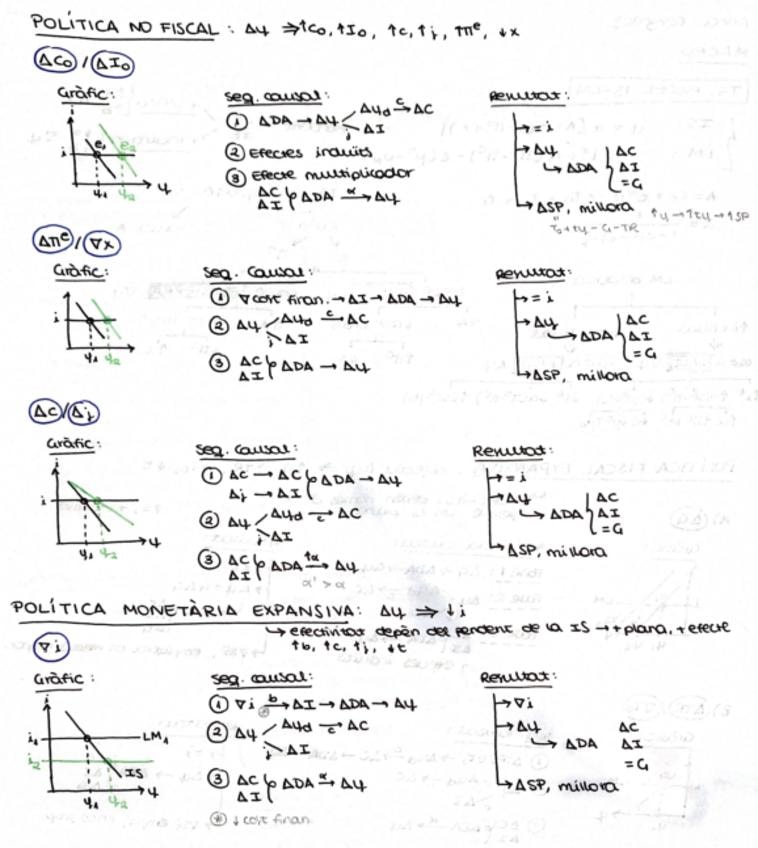 POLÍTICA NO FISCAL : Δy ⇒ ↑C₀, ↑I₀, ↑c, ↑j, ↑πᵉ, ↓x
ΔC₀ / ΔI₀
Gràfic :
i
e₁
e₂
y₁
y₂
y
Seq. causal :
① ΔDA → Δy
Δyd c→ ΔC
j ΔI
② Efectes induïts
③ Efecte multiplicador
ΔC
ΔI
ΔDA α→ Δy
Resultat :
→ = i
→ Δy
↳ ΔDA { ΔC
ΔI
= G
→ ΔSP, millora
↑y → ↑ty → ↑SP
T₀ + ty - G - TR
Δπᵉ / ∇x
Gràfic :
i
y₁
y₂
Seq. causal :
① ∇ cost finan. → ΔI → ΔDA → Δy
② Δy
Δyd c→ ΔC
j ΔI
③ ΔC
ΔI
ΔDA → Δy
Resultat :
→ = i
→ Δy
↳ ΔDA { ΔC
ΔI
= G
→ ΔSP, millora
Δc / Δj
Gràfic :
i
y₁
y₂
y
Seq. causal :
① Δc → ΔC
Δj → ΔI
ΔDA → Δy
② Δy
Δyd c→ ΔC
j ΔI
③ ΔC
ΔI
ΔDA ↑α→ Δy
α' > α
Resultat :
→ = i
→ Δy
↳ ΔDA { ΔC
ΔI
= G
→ ΔSP, millora
POLÍTICA MONETÀRIA EXPANSIVA : Δy ⇒ ↓i
↳ efectivitat depèn del pendent de la IS → + plana, + efecte
↑b, ↑c, ↑j, ↓t
∇i
Gràfic :
i
i₁
i₂
LM₁
IS
y₁
y₂
y
Seq. causal :
① ∇i b→ ΔI → ΔDA → Δy
⊛
② Δy
Δyd c→ ΔC
j ΔI
③ ΔC
ΔI
ΔDA α→ Δy
⊛ ↓ cost finan.
Resultat :
→ ∇i
→ Δy
↳ ΔDA
ΔC
ΔI
= G
→ ΔSP, millora